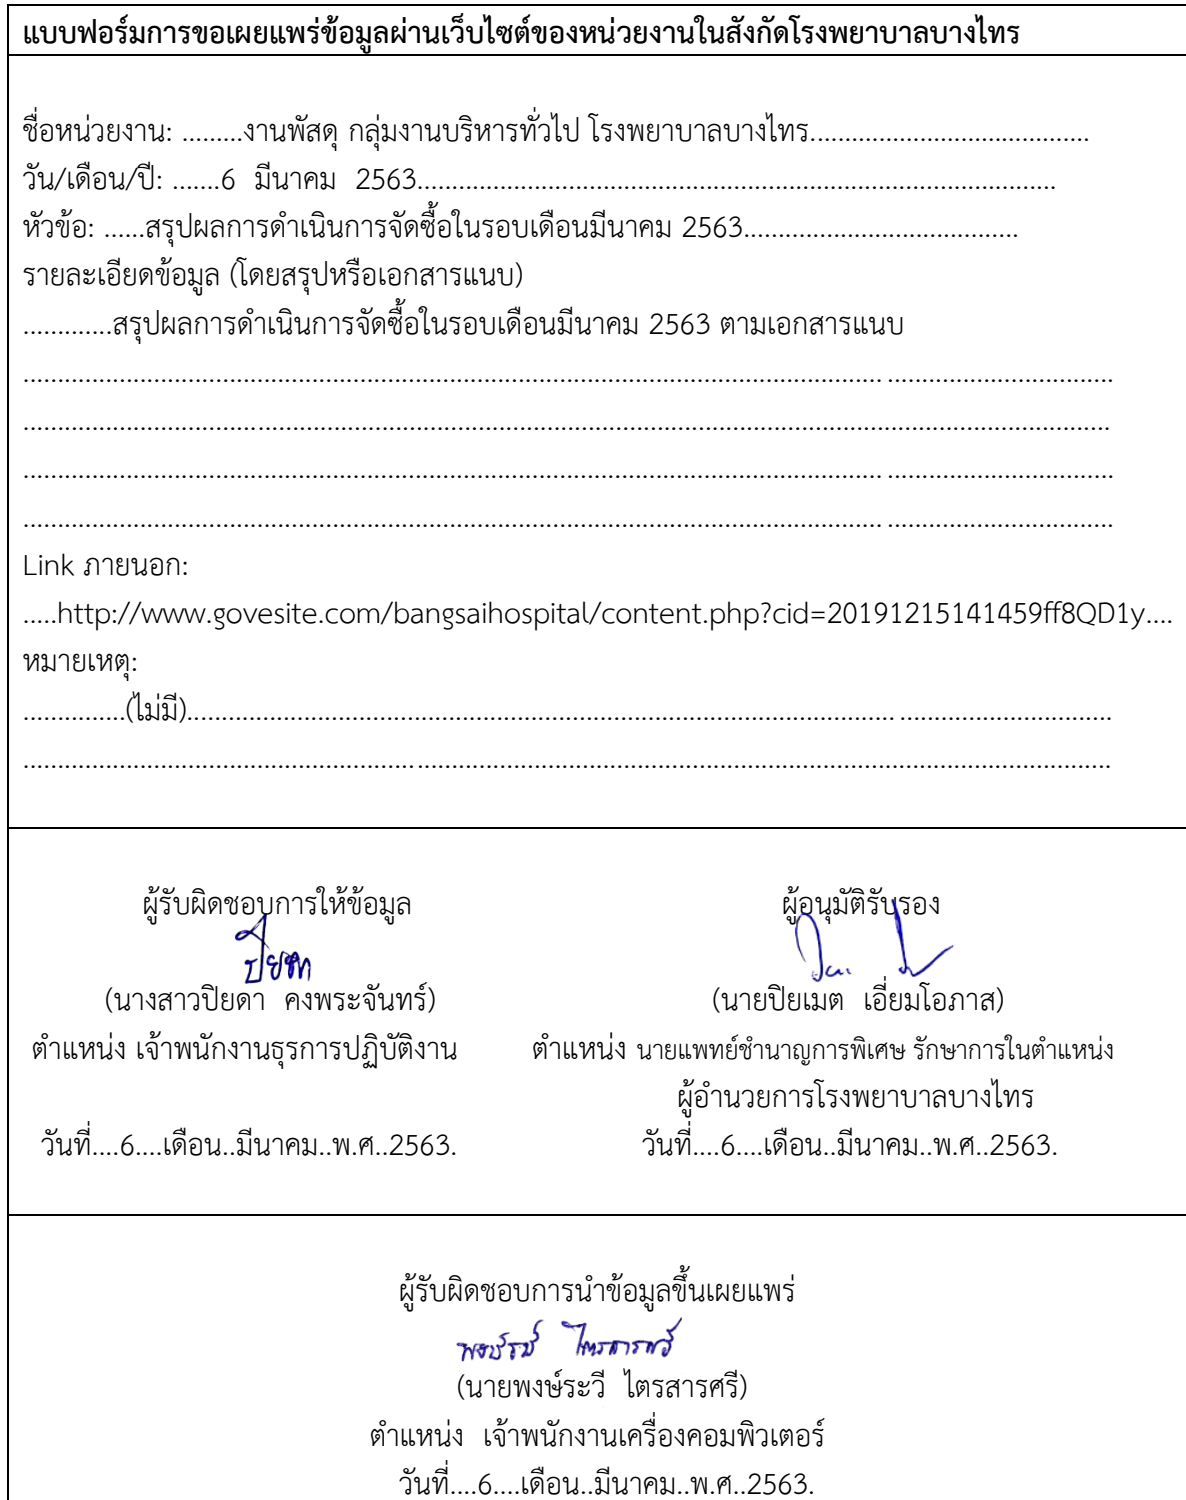 แบบฟอร์มการขอเผยแพร่ข้อมูลผ่านเว็บไซต์ของหน่วยงานในสังกัดโรงพยาบาลบางไทร
ชื่อหน่วยงาน: .........งานพัสดุ กลุ่มงานบริหารทั่วไป โรงพยาบาลบางไทร.........................................
วัน/เดือน/ปี: .......6 มีนาคม 2563.............................................................................................
หัวข้อ: ......สรุปผลการดำเนินการจัดซื้อในรอบเดือนมีนาคม 2563........................................
รายละเอียดข้อมูล (โดยสรุปหรือเอกสารแนบ)
.............สรุปผลการดำเนินการจัดซื้อในรอบเดือนมีนาคม 2563 ตามเอกสารแนบ
Link ภายนอก:
.....http://www.govesite.com/bangsaihospital/content.php?cid=20191215141459ff8QD1y....
หมายเหตุ:
...............(ไม่มี)......................................................................................................................................
ผู้รับผิดชอบการให้ข้อมูล
ปิยดา
(นางสาวปิยดา คงพระจันทร์)
ตำแหน่ง เจ้าพนักงานธุรการปฏิบัติงาน
วันที่....6....เดือน..มีนาคม..พ.ศ..2563.
ผู้อนุมัติรับรอง
(นายปิยเมต เอี่ยมโอภาส)
ตำแหน่ง นายแพทย์ชำนาญการพิเศษ รักษาการในตำแหน่ง
ผู้อำนวยการโรงพยาบาลบางไทร
วันที่....6....เดือน..มีนาคม..พ.ศ..2563.
ผู้รับผิดชอบการนำข้อมูลขึ้นเผยแพร่
พงษ์ระวี ไตรสารศรี
(นายพงษ์ระวี ไตรสารศรี)
ตำแหน่ง เจ้าพนักงานเครื่องคอมพิวเตอร์
วันที่....6....เดือน..มีนาคม..พ.ศ..2563.